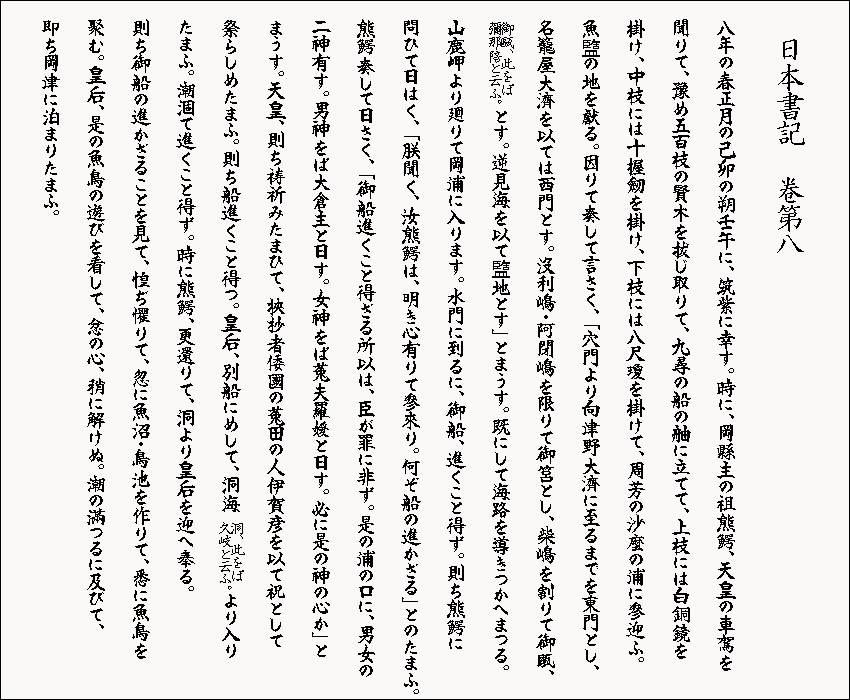 日本書記　巻第八
八年の春正月の己卯の朔壬午に、筑紫に幸す。時に、岡縣主の祖熊鰐、天皇の車駕を
聞りて、豫め五百枝の賢木を拔じ取りて、九尋の船の舳に立てて、上枝には白銅鏡を
掛け、中枝には十握剱を掛け、下枝には八尺瓊を掛けて、周芳の沙麼の浦に參迎ふ。
魚鹽の地を獻る。因りて奏して言さく、「穴門より向津野大濟に至るまでを東門とし、
名籠屋大濟を以ては西門とす。沒利嶋・阿閉嶋を限りて御筥とし、柴嶋を割りて御甂、
御甂、此をば彌那陪と云ふ。とす。逆見海を以て鹽地とす」とまうす。既にして海路を導きつかへまつる。
山鹿岬より廻りて岡浦に入ります。水門に到るに、御船、進くこと得ず。則ち熊鰐に
問ひて日はく、「朕聞く、汝熊鰐は、明き心有りて參來り。何ぞ船の進かざる」とのたまふ。
熊鰐奏して日さく、「御船進くこと得ざる所以は、臣が罪に非ず。是の浦の口に、男女の
二神有す。男神をば大倉主と日す。女神をば菟夫羅媛と日す。必に是の神の心か」と
まうす。天皇、則ち祷祈みたまひて、挾抄者倭國の菟田の人伊賀彦を以て祝として
祭らしめたまふ。則ち船進くこと得つ。皇后、別船にめして、洞海 洞、此をば久岐と云ふ。より入り
たまふ。潮涸て進くこと得ず。時に熊鰐、更還りて、洞より皇后を迎へ奉る。
則ち御船の進かざることを見て、惶ぢ懼りて、忽に魚沼・鳥池を作りて、悉に魚鳥を
聚む。皇后、是の魚鳥の遊びを看して、忿の心、稍に解けぬ。潮の滿つるに及びて、
即ち岡津に泊まりたまふ。